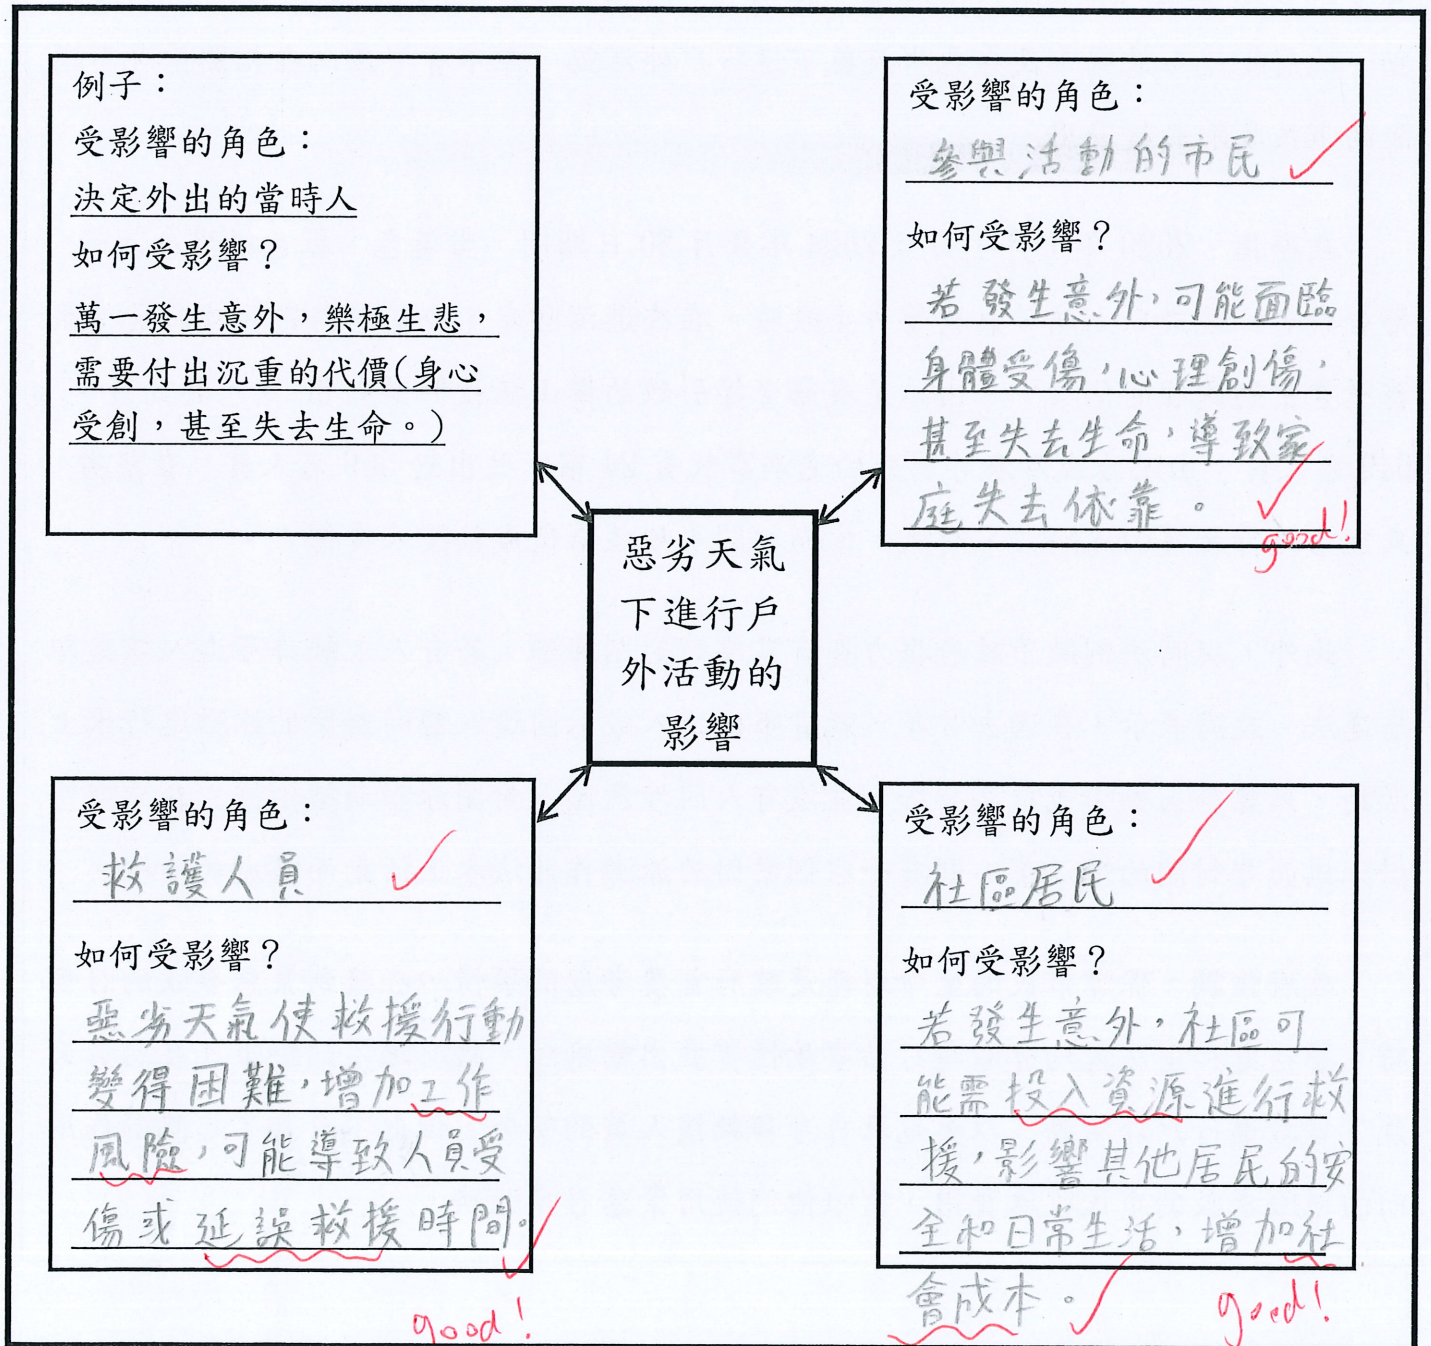 例子：
受影響的角色：
決定外出的當時人
如何受影響？
萬一發生意外，樂極生悲，
需要付出沉重的代價(身心
受創，甚至失去生命。)
受影響的角色：
參與活動的市民
如何受影響？
若發生意外，可能面臨
身體受傷，心理創傷，
甚至失去生命，導致家
庭失去依靠。
good!
惡劣天氣
下進行戶
外活動的
影響
受影響的角色：
救護人員
如何受影響？
惡劣天氣使救援行動
變得困難，增加工作
風險，可能導致人員受
傷或延誤救援時間。
good!
受影響的角色：
社區居民
如何受影響？
若發生意外，社區可
能需投入資源進行救
援，影響其他居民的安
全和日常生活，增加社
會成本。
good!